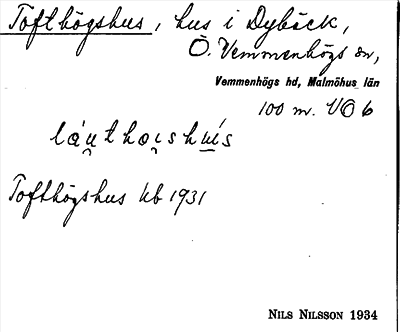 Tofthögshus, hus i Dybäck,
Ö. Vemmenhögs sn,
Vemmenhögs hd, Malmöhus län
100 m. VO 6
Tofthögshus kb 1931
NILS NILSSON 1934